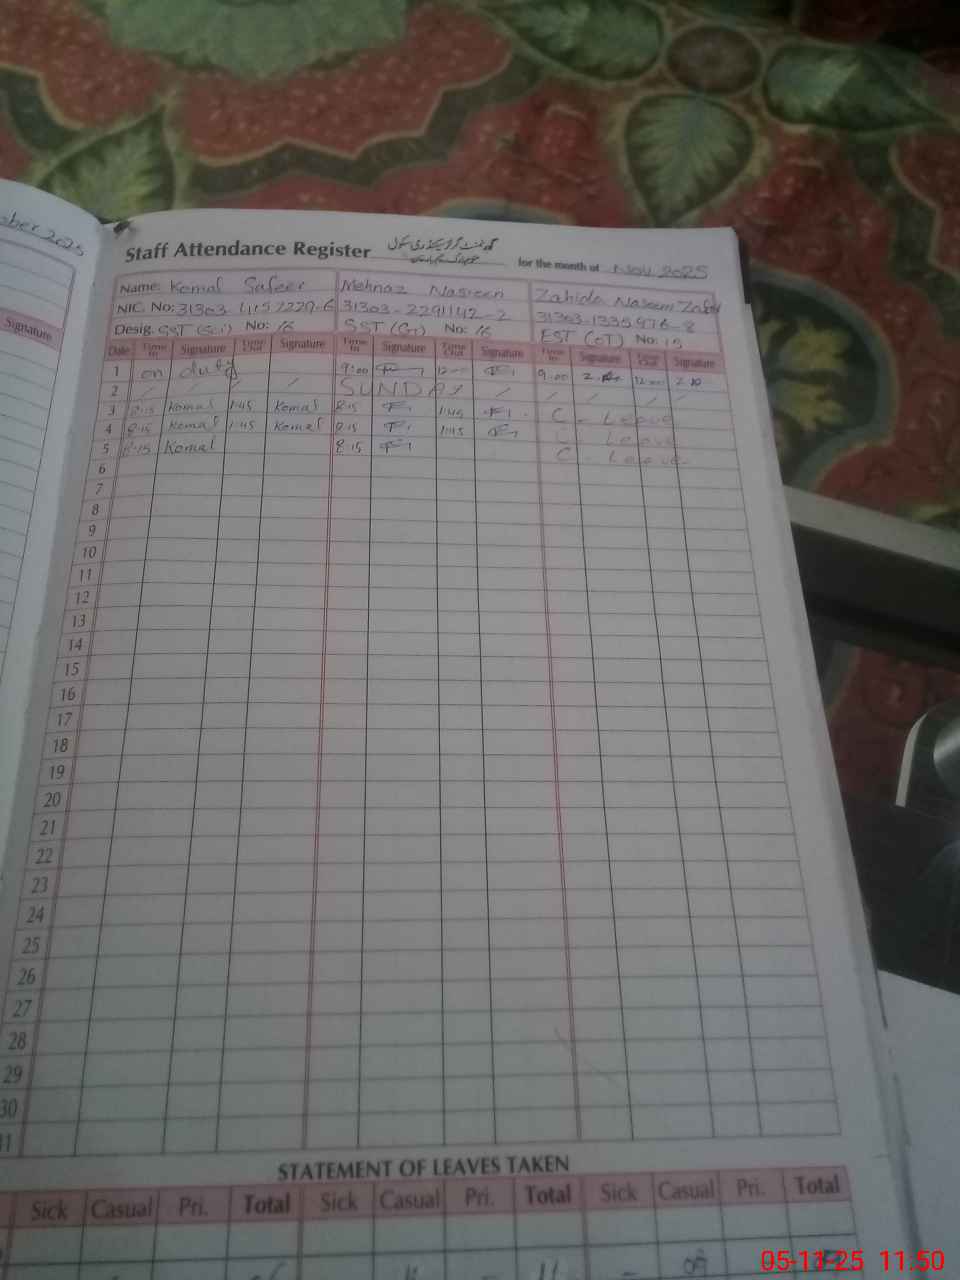 ber 2025
Signature
Staff Attendance Register for the month of Nov 2025
Name: Komal Safeer Mehnaz Nasreen Zahida Naseem
NIC. No: 31303 31303-2291142-2 31303-1335976-8
Desig. SST No: 16 SST No: 16 EST No: 15
Date Time In Signature Time Out Signature Time In Signature Time Out Signature Time In Signature Time Out Signature
1 on duty 9:00 12:00 9:00 12:00
2 / / / / SUNDAY / / / / /
3 8:15 Komal 1:45 Komal 8:15 1:45 C - Leave
4 8:15 Komal 1:45 Komal 8:15 1:45 C - Leave
5 8:15 Komal 8:15 C - Leave
6
7
8
9
10
11
12
13
14
15
16
17
18
19
20
21
22
23
24
25
26
27
28
29
30
31
STATEMENT OF LEAVES TAKEN
Sick Casual Pri. Total Sick Casual Pri. Total Sick Casual Pri. Total
05-11-25 11:50